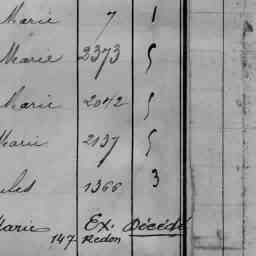 Marie 7 1
Marie 2373 5
Marie 2042 5
Marie 2137 5
1366 3
Marie Ex. Décédé
147 Redon